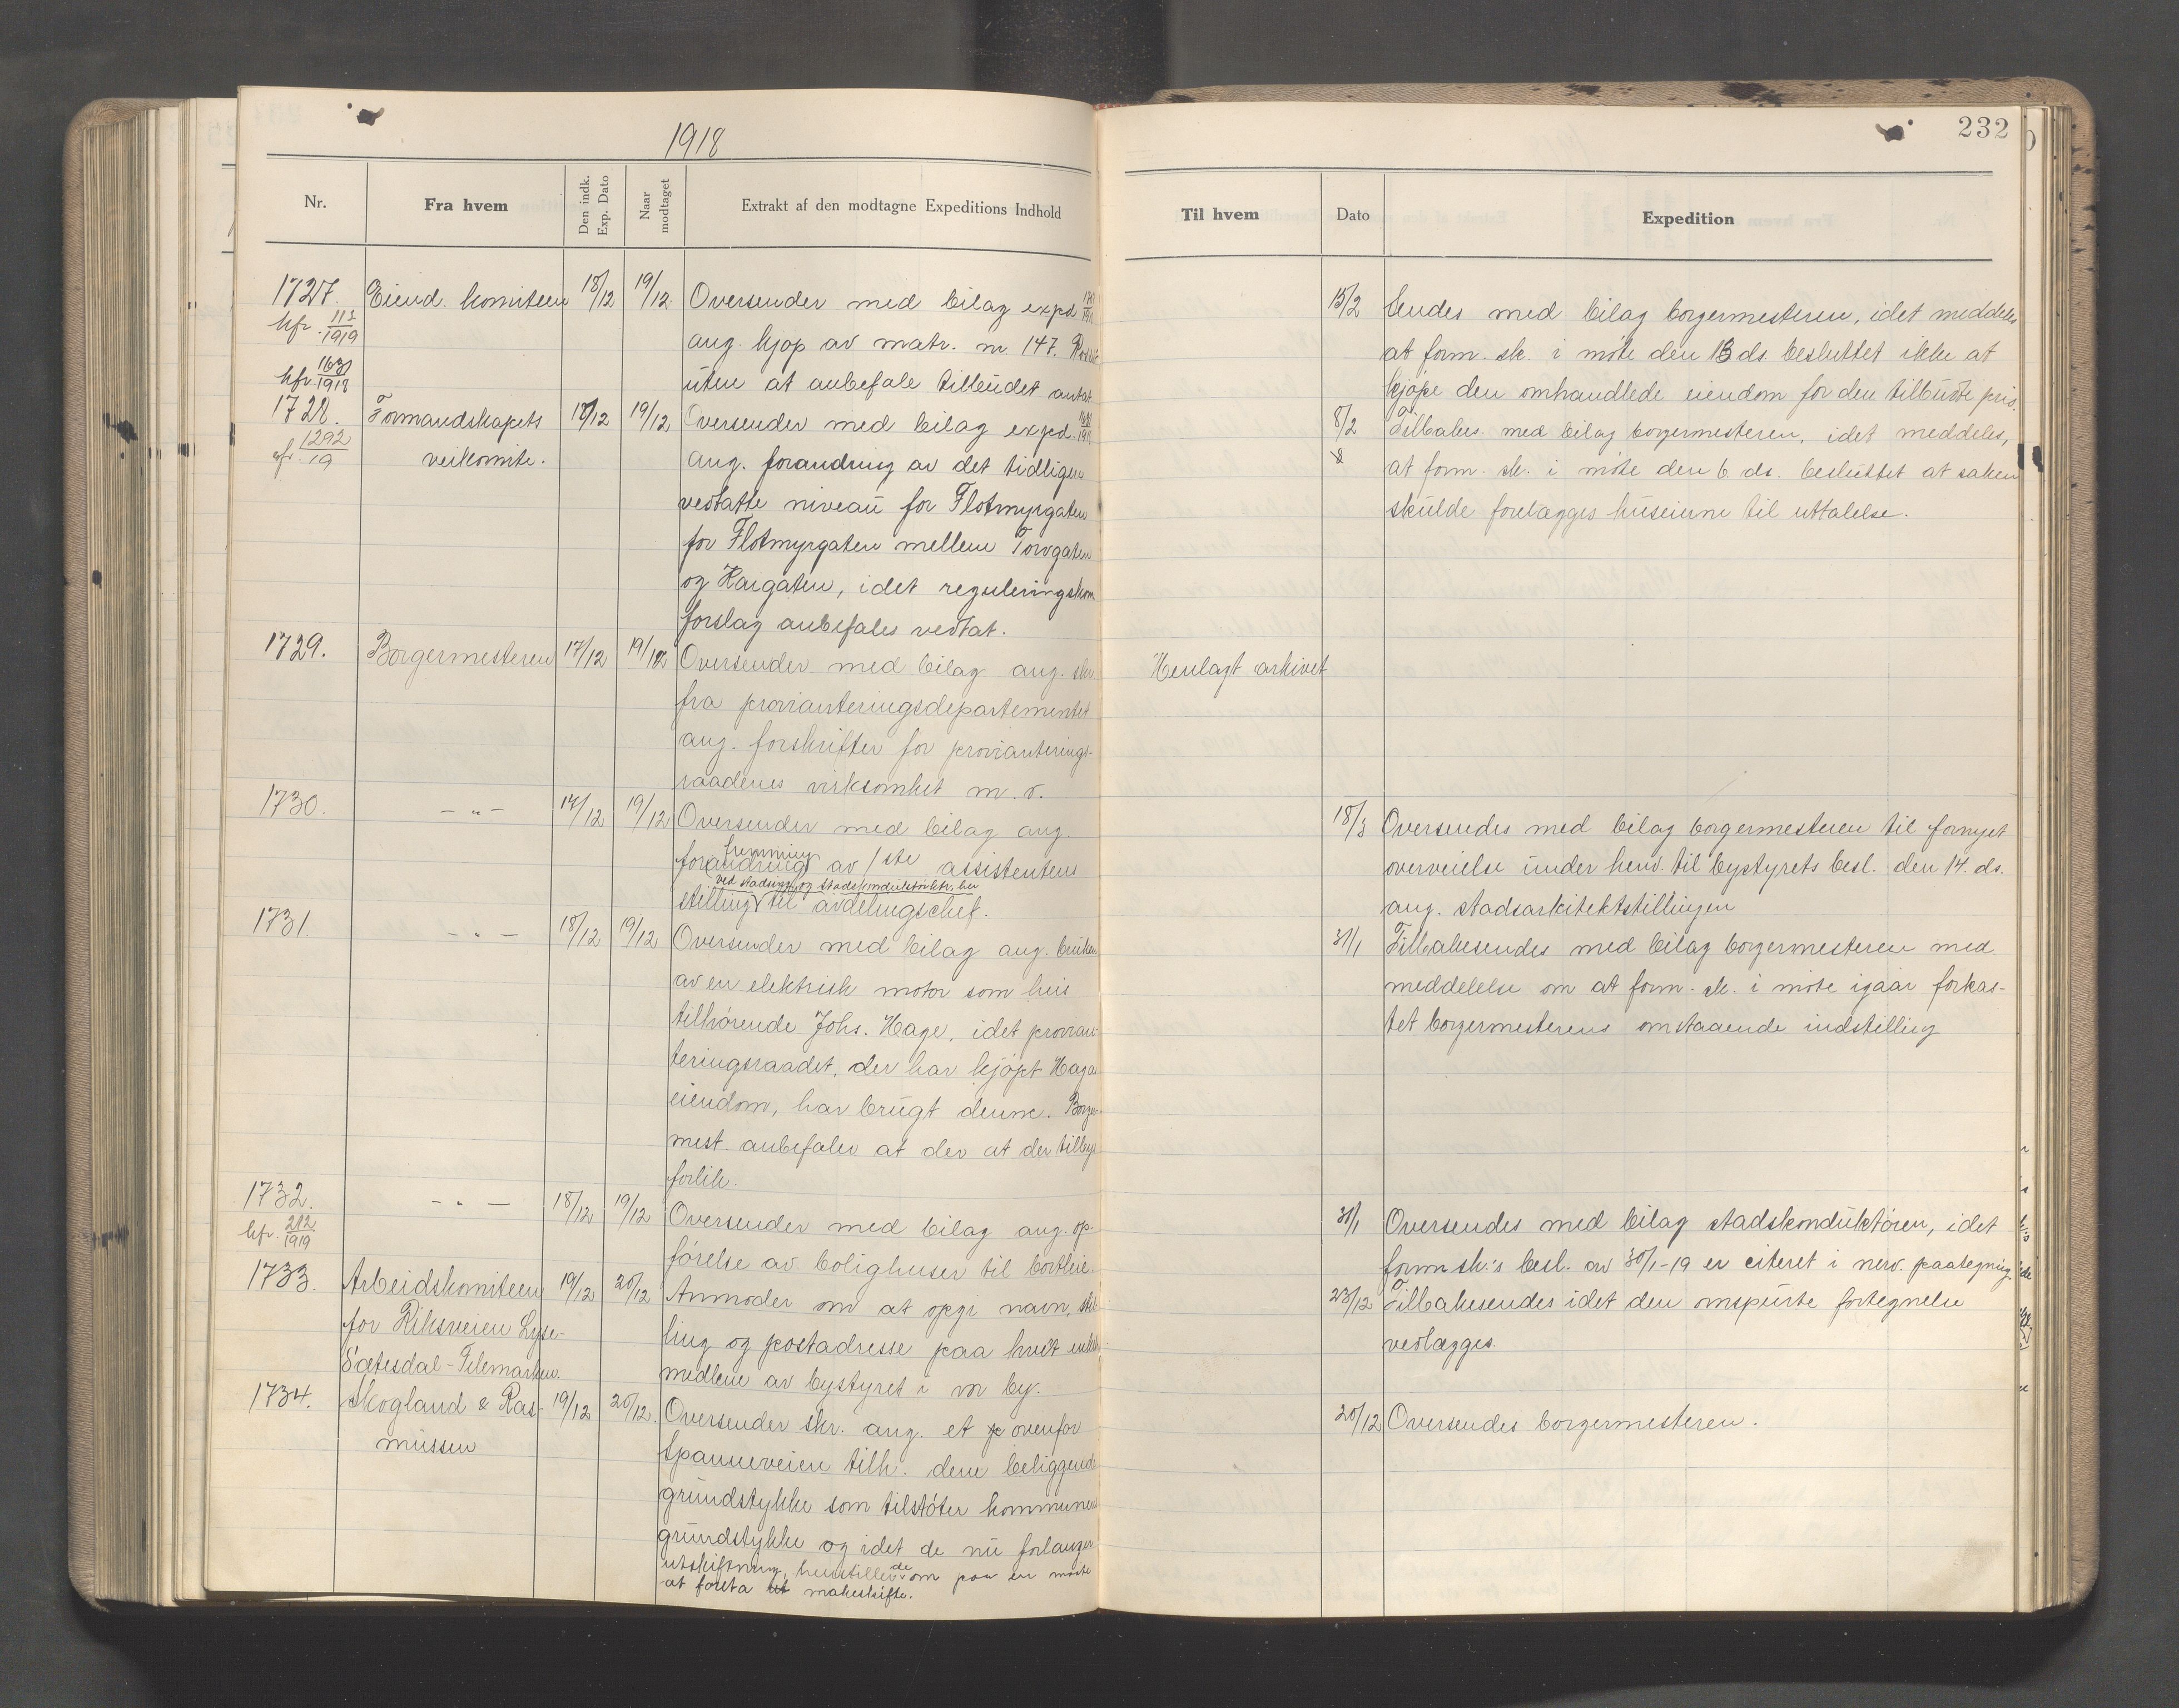 1918
232
Nr.
Fra hvem
Den indk. Exp. Dato
Naar modtaget
Extrakt af den modtagne Expeditions Indhold
Til hvem
Dato
Expedition
1727. Eiend. komiteen 18/12 19/12 Oversender med bilag expd
kfr. 113/1919
ang. kjøp av matr. nr. 147.
uten at anbefale tilbudet antat
15/2 Sendes med bilag borgermesteren, idet meddeles
at form. sk. i møte den 13 ds. besluttet ikke at
kjøpe den omhandlede eiendom for den tilbudte pris.
kfr. 1918
1728. Formandskapets 18/12 19/12 Oversender med bilag expd.
kfr. 1292/19
veikomite.
ang. forandring av det tidligere
vedtatte niveau for Flotmyrgaten
for Flotmyrgaten mellem Torvgaten
og Kaigaten, idet reguleringskom
forslag anbefales vedtat.
8/2 Tilbakes. med bilag borgermesteren, idet meddeles,
at form. sk. i møte den 6 ds. besluttet at saken
skulde forelægges huseierne til uttalelse.
1729. Borgermesteren 17/12 19/12 Oversender med bilag ang. skr
fra provianteringsdepartementet
ang. forskrifter for provianterings-
raadenes virksomhet m. v.
Henlagt arkivet
1730. — " — 17/12 19/12 Oversender med bilag ang.
forandring av 1ste assistentens
ved stadsing. og stadskonduktørktr. her
stilling til avdelingschef.
18/3 Oversendes med bilag borgermesteren til fornyet
overveielse under henv. til bystyrets besl. den 14. ds.
ang. stadsarkitektstillingen
1731. — " — 18/12 19/12 Oversender med bilag ang. bruken
av en elektrisk motor som hus
tilhørende Johs. Hage, idet provian-
teringsraadet, der har kjøpt Haga
eiendom, har brugt denne. Borger-
mest. anbefaler at der at der tilbys
forlik.
31/1 Tilbakesendes med bilag borgermesteren med
meddelelse om at form. sk. i møte igaar forkas-
tet borgermesterens omstaaende indstilling
1732. — " — 18/12 19/12 Oversender med bilag ang. op-
kfr. 212/1919
førelse av bolighuser til bortleie.
31/1 Oversendes med bilag stadskonduktøren, idet
form sk.'s besl. av 30/1-19 er citeret i nerv. paategning.
1733. Arbeidskomiteen 19/12 20/12 Anmoder om at opgi navn, stil-
for Riksveien Lyse-
ling og postadresse paa hvert enkelt
Sætesdal-Telemarken.
medlem av bystyret i vor by.
23/12 Tilbakesendes idet den omspurte fortegnelse
vedlægges.
1734. Skogland & Ras- 19/12 20/12. Oversender skr. ang. et ovenfor
mussen
Spanneveien tilh. dem beliggende
grundstykke som tilstøter kommunens
grundstykke og idet de nu forlanger
utskiftning, henstiller de om paa en maate
at foreta makeskifte.
20/12 Oversendes borgermesteren.